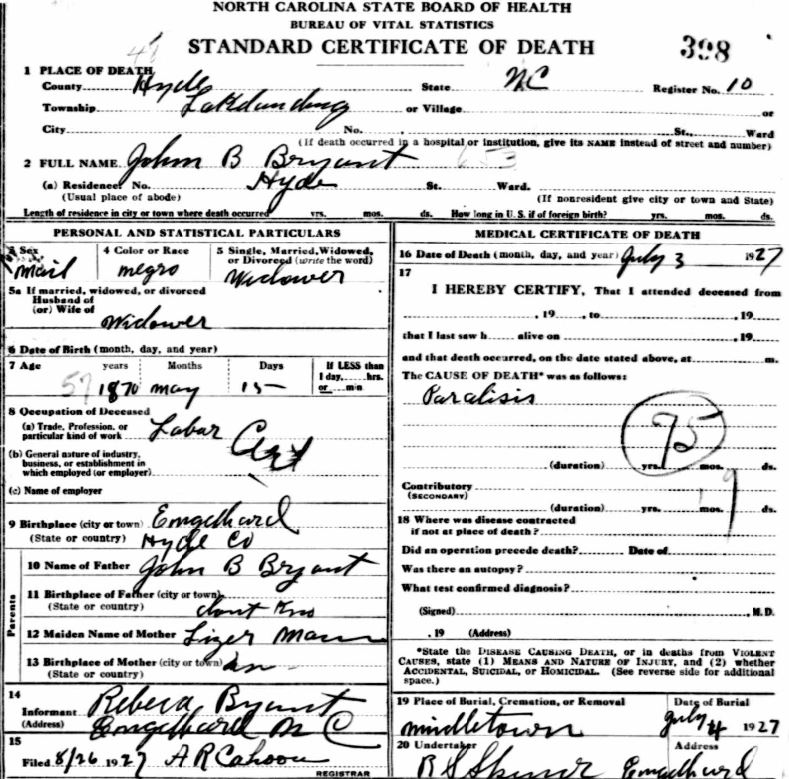 NORTH CAROLINA STATE BOARD OF HEALTH
BUREAU OF VITAL STATISTICS
STANDARD CERTIFICATE OF DEATH
398
1 PLACE OF DEATH
County Hyde State NC Register No. 10
Township or Village or
City No. St., Ward
(If death occurred in a hospital or institution, give its NAME instead of street and number)
2 FULL NAME John B Bryant 653
(a) Residence No. Hyde St. Ward.
(Usual place of abode) (If nonresident give city or town and State)
Length of residence in city or town where death occurred yrs. mos. ds. How long in U.S. if of foreign birth? yrs. mos. ds.
PERSONAL AND STATISTICAL PARTICULARS
3 Sex 4 Color or Race 5 Single, Married, Widowed, or Divorced (write the word)
mail negro Widower
5a If married, widowed, or divorced
Husband of
(or) Wife of
Widower
6 Date of Birth (month, day, and year)
7 Age years Months Days If LESS than
1 day, hrs.
or min
57 1870 may 15
8 Occupation of Deceased
(a) Trade, Profession, or
particular kind of work Labar
(b) General nature of industry,
business, or establishment in
which employed (or employer)
(c) Name of employer
9 Birthplace (city or town) Engelhard
(State or country) Hyde Co
Parents
10 Name of Father John B Bryant
11 Birthplace of Father (city or town)
(State or country) dont Kno
12 Maiden Name of Mother Lizer Mann
13 Birthplace of Mother (city or town)
(State or country)
14
Informant Rebeca Bryant
(Address) Engelhard N C
15
Filed 8/26 1927 A R Cahoon
REGISTRAR
MEDICAL CERTIFICATE OF DEATH
16 Date of Death (month, day, and year) July 3 1927
17
I HEREBY CERTIFY, That I attended deceased from
, 19 , to , 19
that I last saw h alive on , 19
and that death occurred, on the date stated above, at m.
The CAUSE OF DEATH* was as follows:
Paralisis
75
(duration) yrs. mos. ds.
Contributory
(SECONDARY)
9
(duration) yrs. mos. ds.
18 Where was disease contracted
if not at place of death?
Did an operation precede death? Date of
Was there an autopsy?
What test confirmed diagnosis?
(Signed) , M.D.
, 19 (Address)
*State the DISEASE CAUSING DEATH, or in deaths from VIOLENT
CAUSES, state (1) MEANS AND NATURE OF INJURY, and (2) whether
ACCIDENTAL, SUICIDAL, or HOMICIDAL. (See reverse side for additional
space.)
19 Place of Burial, Cremation, or Removal Date of Burial
middletown July 4 1927
20 Undertaker Address
R S Engelhard